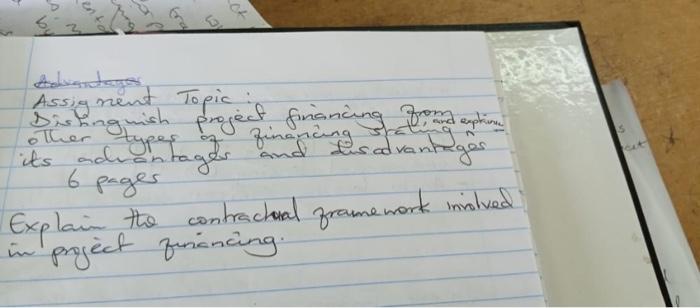 Advantages
Assignment Topic:
Distinguish project financing from
other types of financing stating, and explaining
its advantages and disadvantages
6 pages
Explain the contractual framework involved
in project financing.